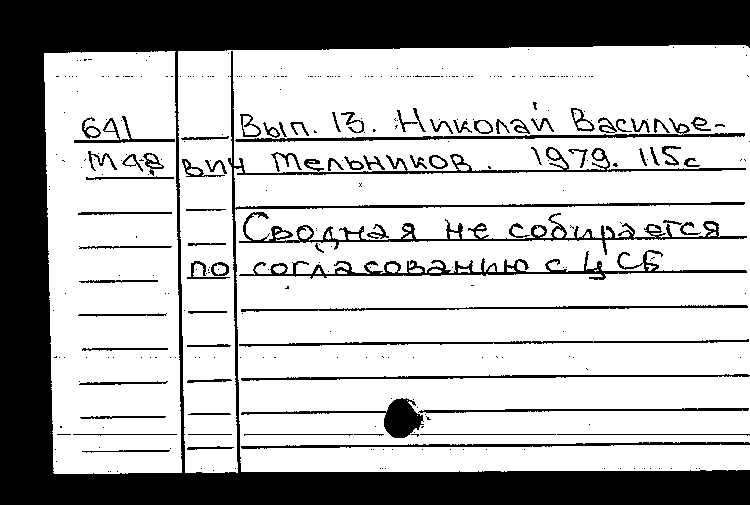 641 Вып. 13. Николай Василье-
М48 вич Мельников. 1979. 115с
Сводная не собирается
по согласованию с ЦСБ